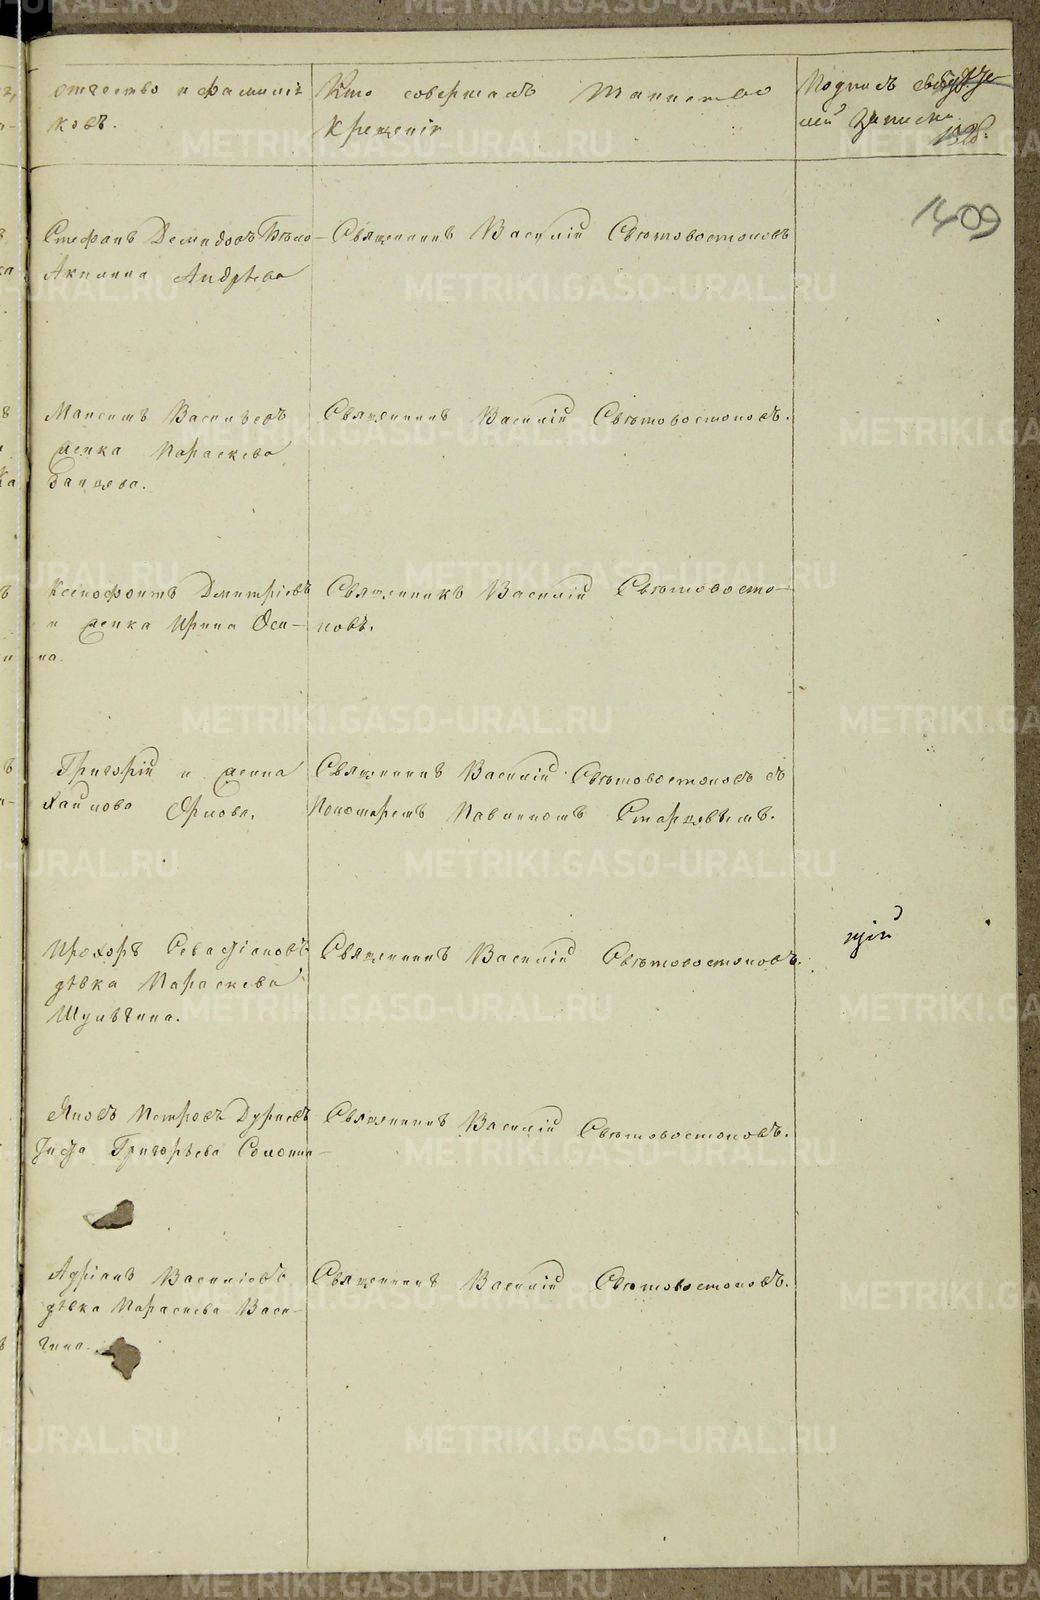 отчество и фамилiя
ковъ.
Кто совершалъ таинство
крещенiя
Подпись свидѣте
лей записи
1409
Стефанъ Демидовъ
Акилина Андрѣева
Священникъ Василiй Свѣтовостоковъ
Максимъ Васильевъ
женка Параскева
Священникъ Василiй Свѣтовостоковъ.
Ксенофонтъ Димитрiевъ
и женка Ирина Оси-
на
Священникъ Василiй Свѣтовосто-
ковъ.
Григорiй и женка
Священникъ Василiй Свѣтовостоковъ съ
Пономаремъ Павлиномъ Старцевымъ.
Прохоръ Севастiановъ
дѣвка Параскева
Шульгина.
Священникъ Василiй Свѣтовостоковъ.
щiй
Яковъ Петровъ
Григорьева
Священникъ Василiй Свѣтовостоковъ.
Адрiанъ Василiевъ
дѣвка Параскева Васи-
Священникъ Василiй Свѣтовостоковъ.
METRIKI.GASO-URAL.RU